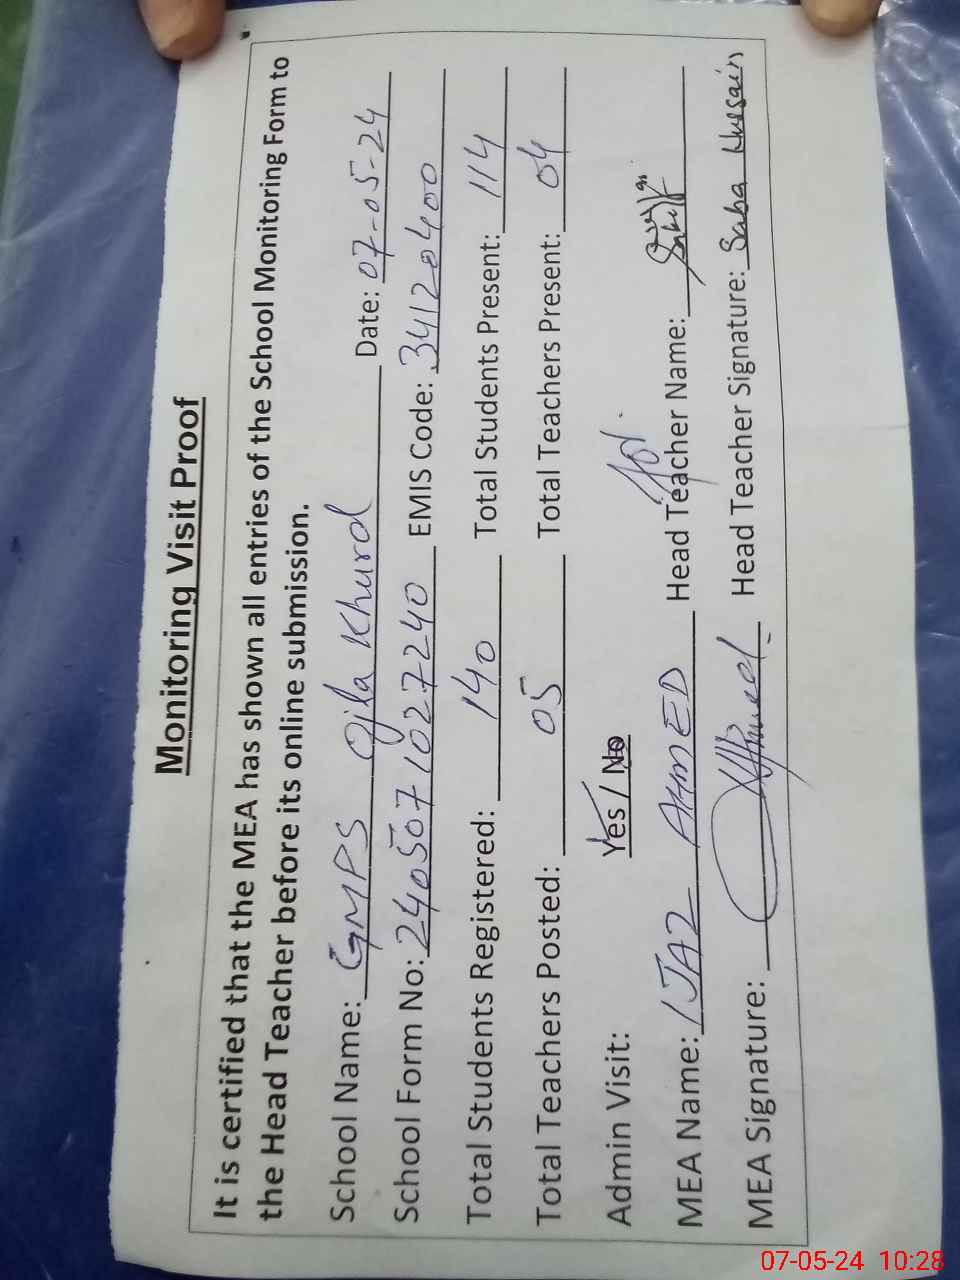 Monitoring Visit Proof
It is certified that the MEA has shown all entries of the School Monitoring Form to
the Head Teacher before its online submission.
School Name: GMPS Ojla Khurd Date: 07-05-24
School Form No: 2405071027240 EMIS Code: 34120400
Total Students Registered: 140 Total Students Present: 114
Total Teachers Posted: 05 Total Teachers Present: 04
Admin Visit: Yes / No
MEA Name: IJAZ AHMED Head Teacher Name:
MEA Signature: Head Teacher Signature: Saba Hussain
07-05-24 10:28